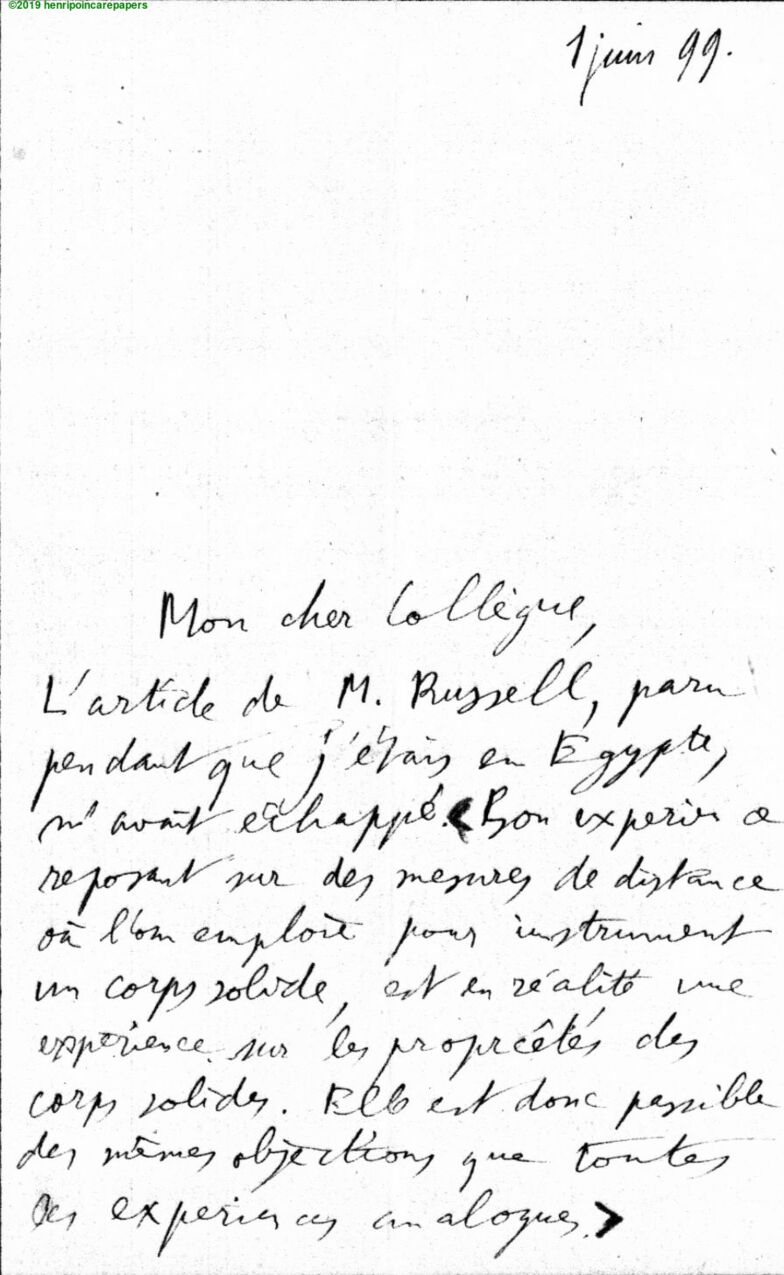 ©2019 henripoincarepapers
1 juin 99.
Mon cher Collègue,
L'article de M. Russell, paru
pendant que j'étais en Egypte,
m'avait échappé. < Son experience
reposant sur des mesures de distance
où l'on emploie pour instrument
un corps solide, est en réalité une
expérience sur les propriétés des
corps solides. Elle est donc passible
des mêmes objections que toutes
les experiences analogues. >